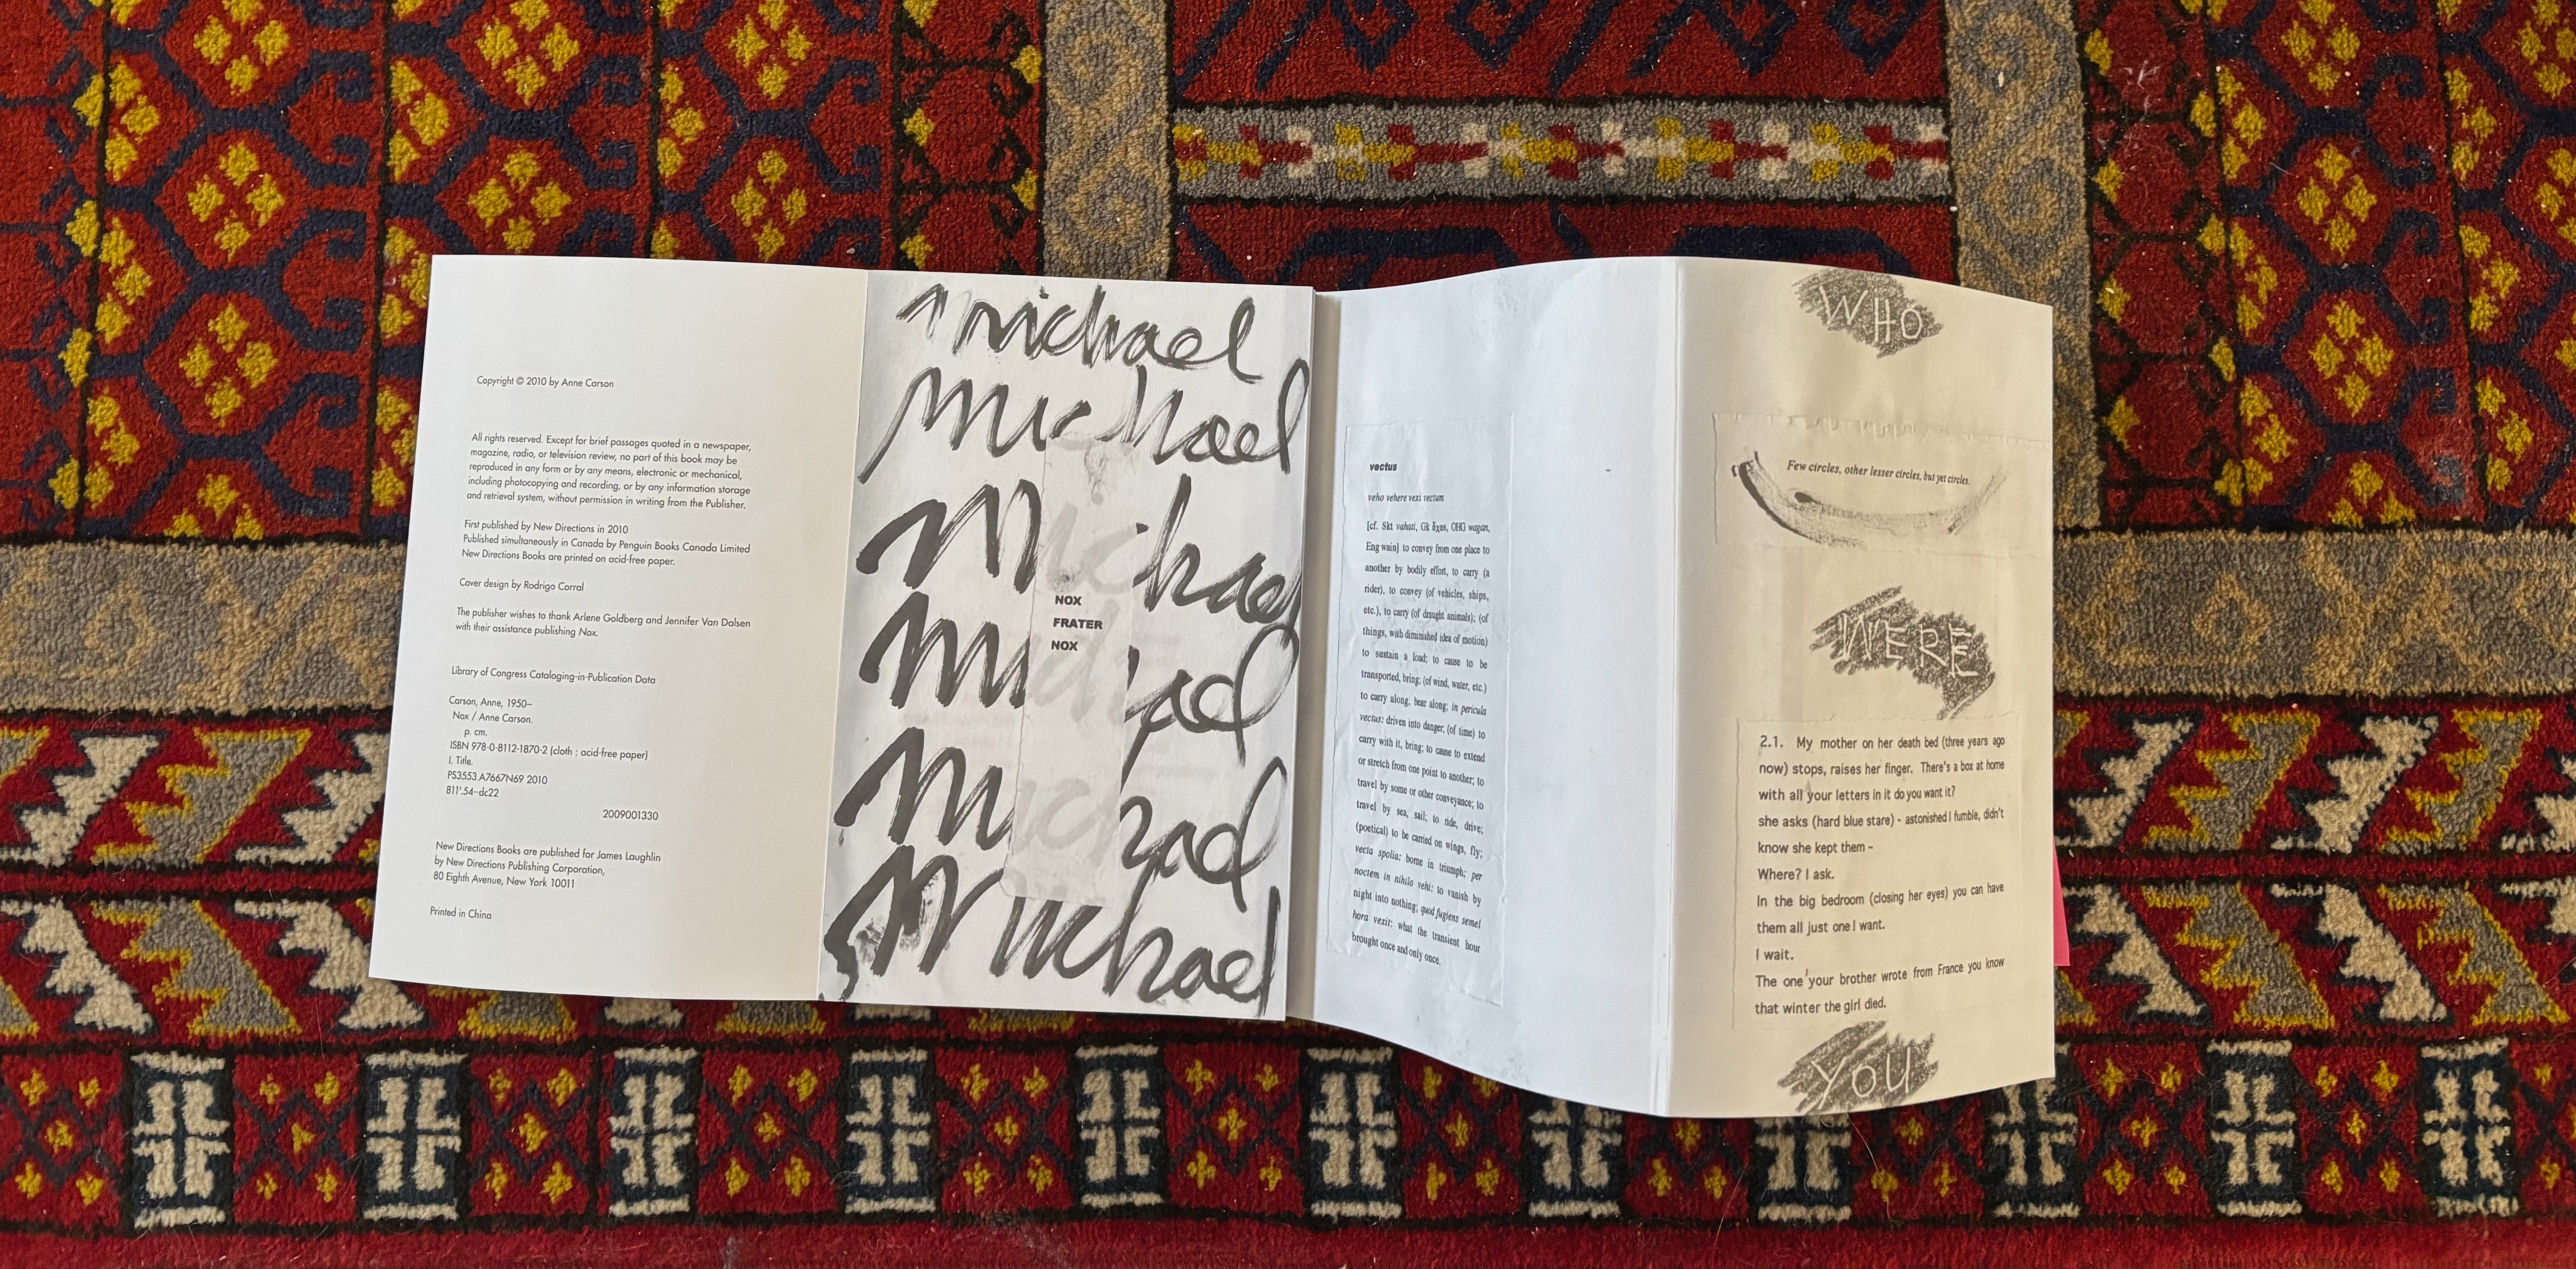 Copyright © 2010 by Anne Carson
All rights reserved. Except for brief passages quoted in a newspaper,
magazine, radio, or television review, no part of this book may be
reproduced in any form or by any means, electronic or mechanical,
including photocopying and recording, or by any information storage
and retrieval system, without permission in writing from the Publisher.
First published by New Directions in 2010
Published simultaneously in Canada by Penguin Books Canada Limited
New Directions Books are printed on acid-free paper.
Cover design by Rodrigo Corral
The publisher wishes to thank Arlene Goldberg and Jennifer Van Dalsen
with their assistance publishing Nox.
Library of Congress Cataloging-in-Publication Data
Carson, Anne, 1950–
Nox / Anne Carson.
p. cm.
ISBN 978-0-8112-1870-2 (cloth : acid-free paper)
I. Title.
PS3553.A7667N69 2010
811'.54--dc22
2009001330
New Directions Books are published for James Laughlin
by New Directions Publishing Corporation,
80 Eighth Avenue, New York 10011
Printed in China
michael
michael
Michael
Michael
Michael
Michael
NOX
FRATER
NOX
vectus
veho vehere vexi vectum
[cf. Skt vahati, Gk ὄχος, OHG wagan,
Eng wain] to convey from one place to
another by bodily effort, to carry (a
rider), to convey (of vehicles, ships,
etc.), to carry (of draught animals); (of
things, with diminished idea of motion)
to sustain a load; to cause to be
transported, bring; (of wind, water, etc.)
to carry along, bear along; in pericula
vectus: driven into danger; (of time) to
carry with it, bring; to cause to extend
or stretch from one point to another; to
travel by some or other conveyance; to
travel by sea, sail; to ride, drive;
(poetical) to be carried on wings, fly;
vecta spolia: borne in triumph; per
noctem in nihilo vehi: to vanish by
night into nothing; quod fugiens semel
hora vexit: what the transient hour
brought once and only once.
WHO
Few circles, other lesser circles, but yet circles.
WERE
2.1. My mother on her death bed (three years ago
now) stops, raises her finger. There's a box at home
with all your letters in it do you want it?
she asks (hard blue stare) - astonished I fumble, didn't
know she kept them -
Where? I ask.
In the big bedroom (closing her eyes) you can have
them all just one I want.
I wait.
The one your brother wrote from France you know
that winter the girl died.
YOU